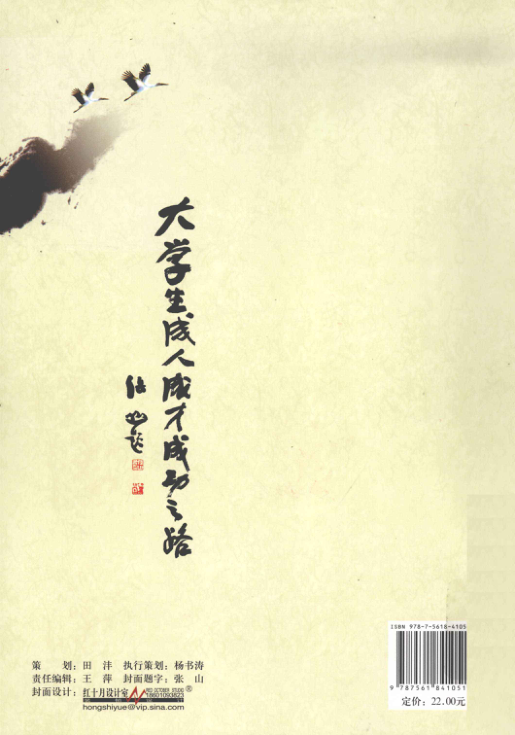 大学生成人成才成功之路
张山题
策 划：田 沣 执行策划：杨书涛
责任编辑：王 萍 封面题字：张 山
封面设计：红十月设计室 RED OCTOBER STUDIO 18601093823
hongshiyue@vip.sina.com
ISBN 978-7-5618-4105
9 787561 841051
定价：22.00元